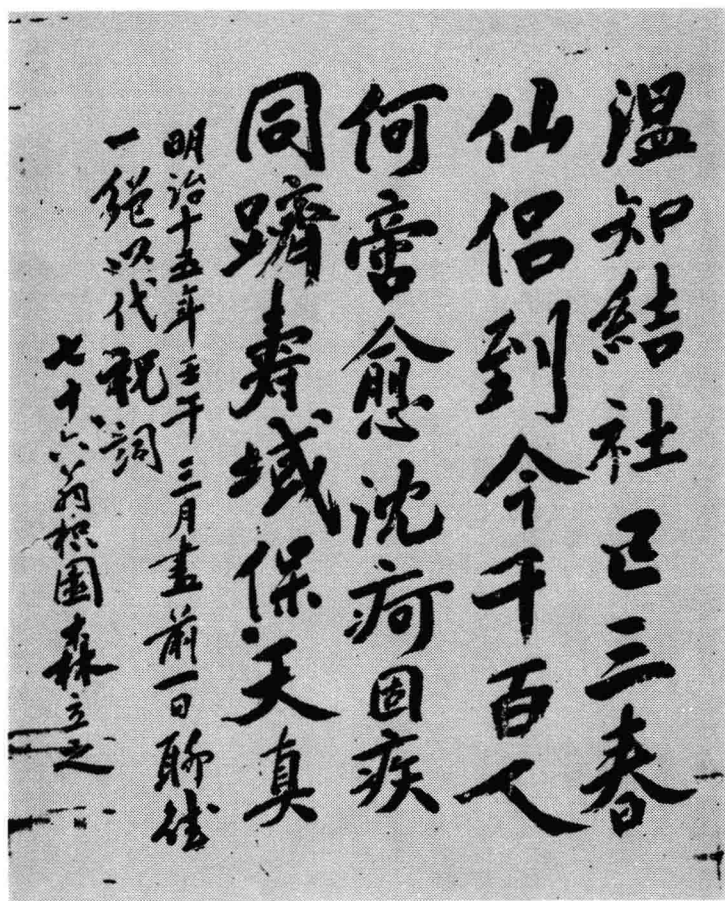 温知結社已三春
仙侶到今千百人
何啻愈沈疴固疾
同躋寿域保天真
明治十五年壬午三月盡前一日聊
一絶以代祝詞
七十六翁枳園森立之